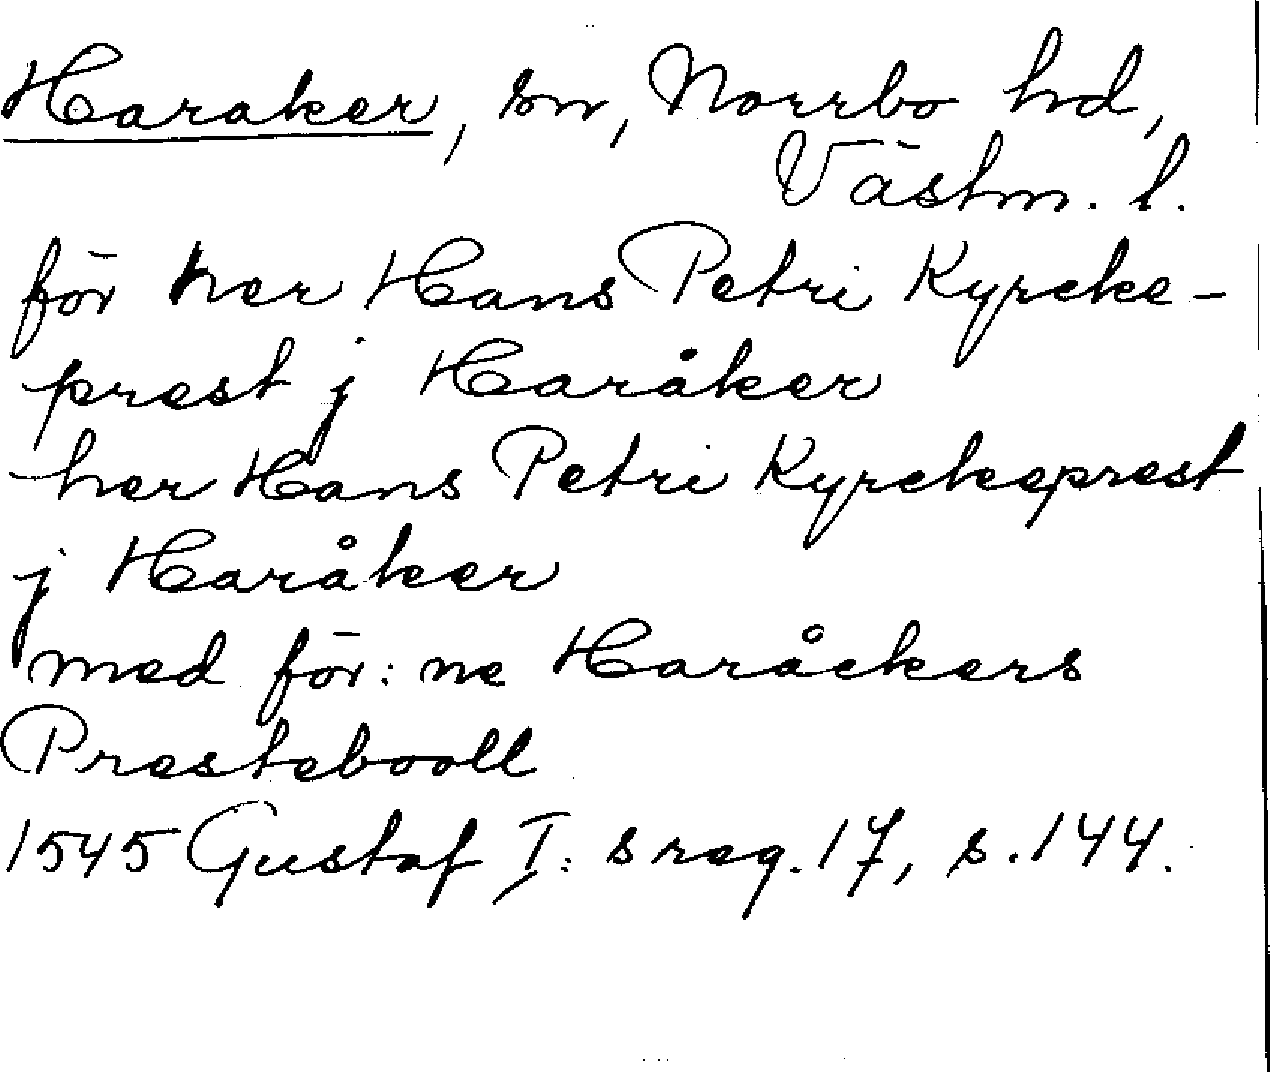 Haraker, sn, Norrbo hd,
Västm. l.
för her Hans Petri Kyrcke-
prest j Haråker
her Hans Petri Kyrckeprest
j Haråker
med för:ne Haråckers
Prestebooll
1545 Gustaf I:s reg. 17, s. 144.